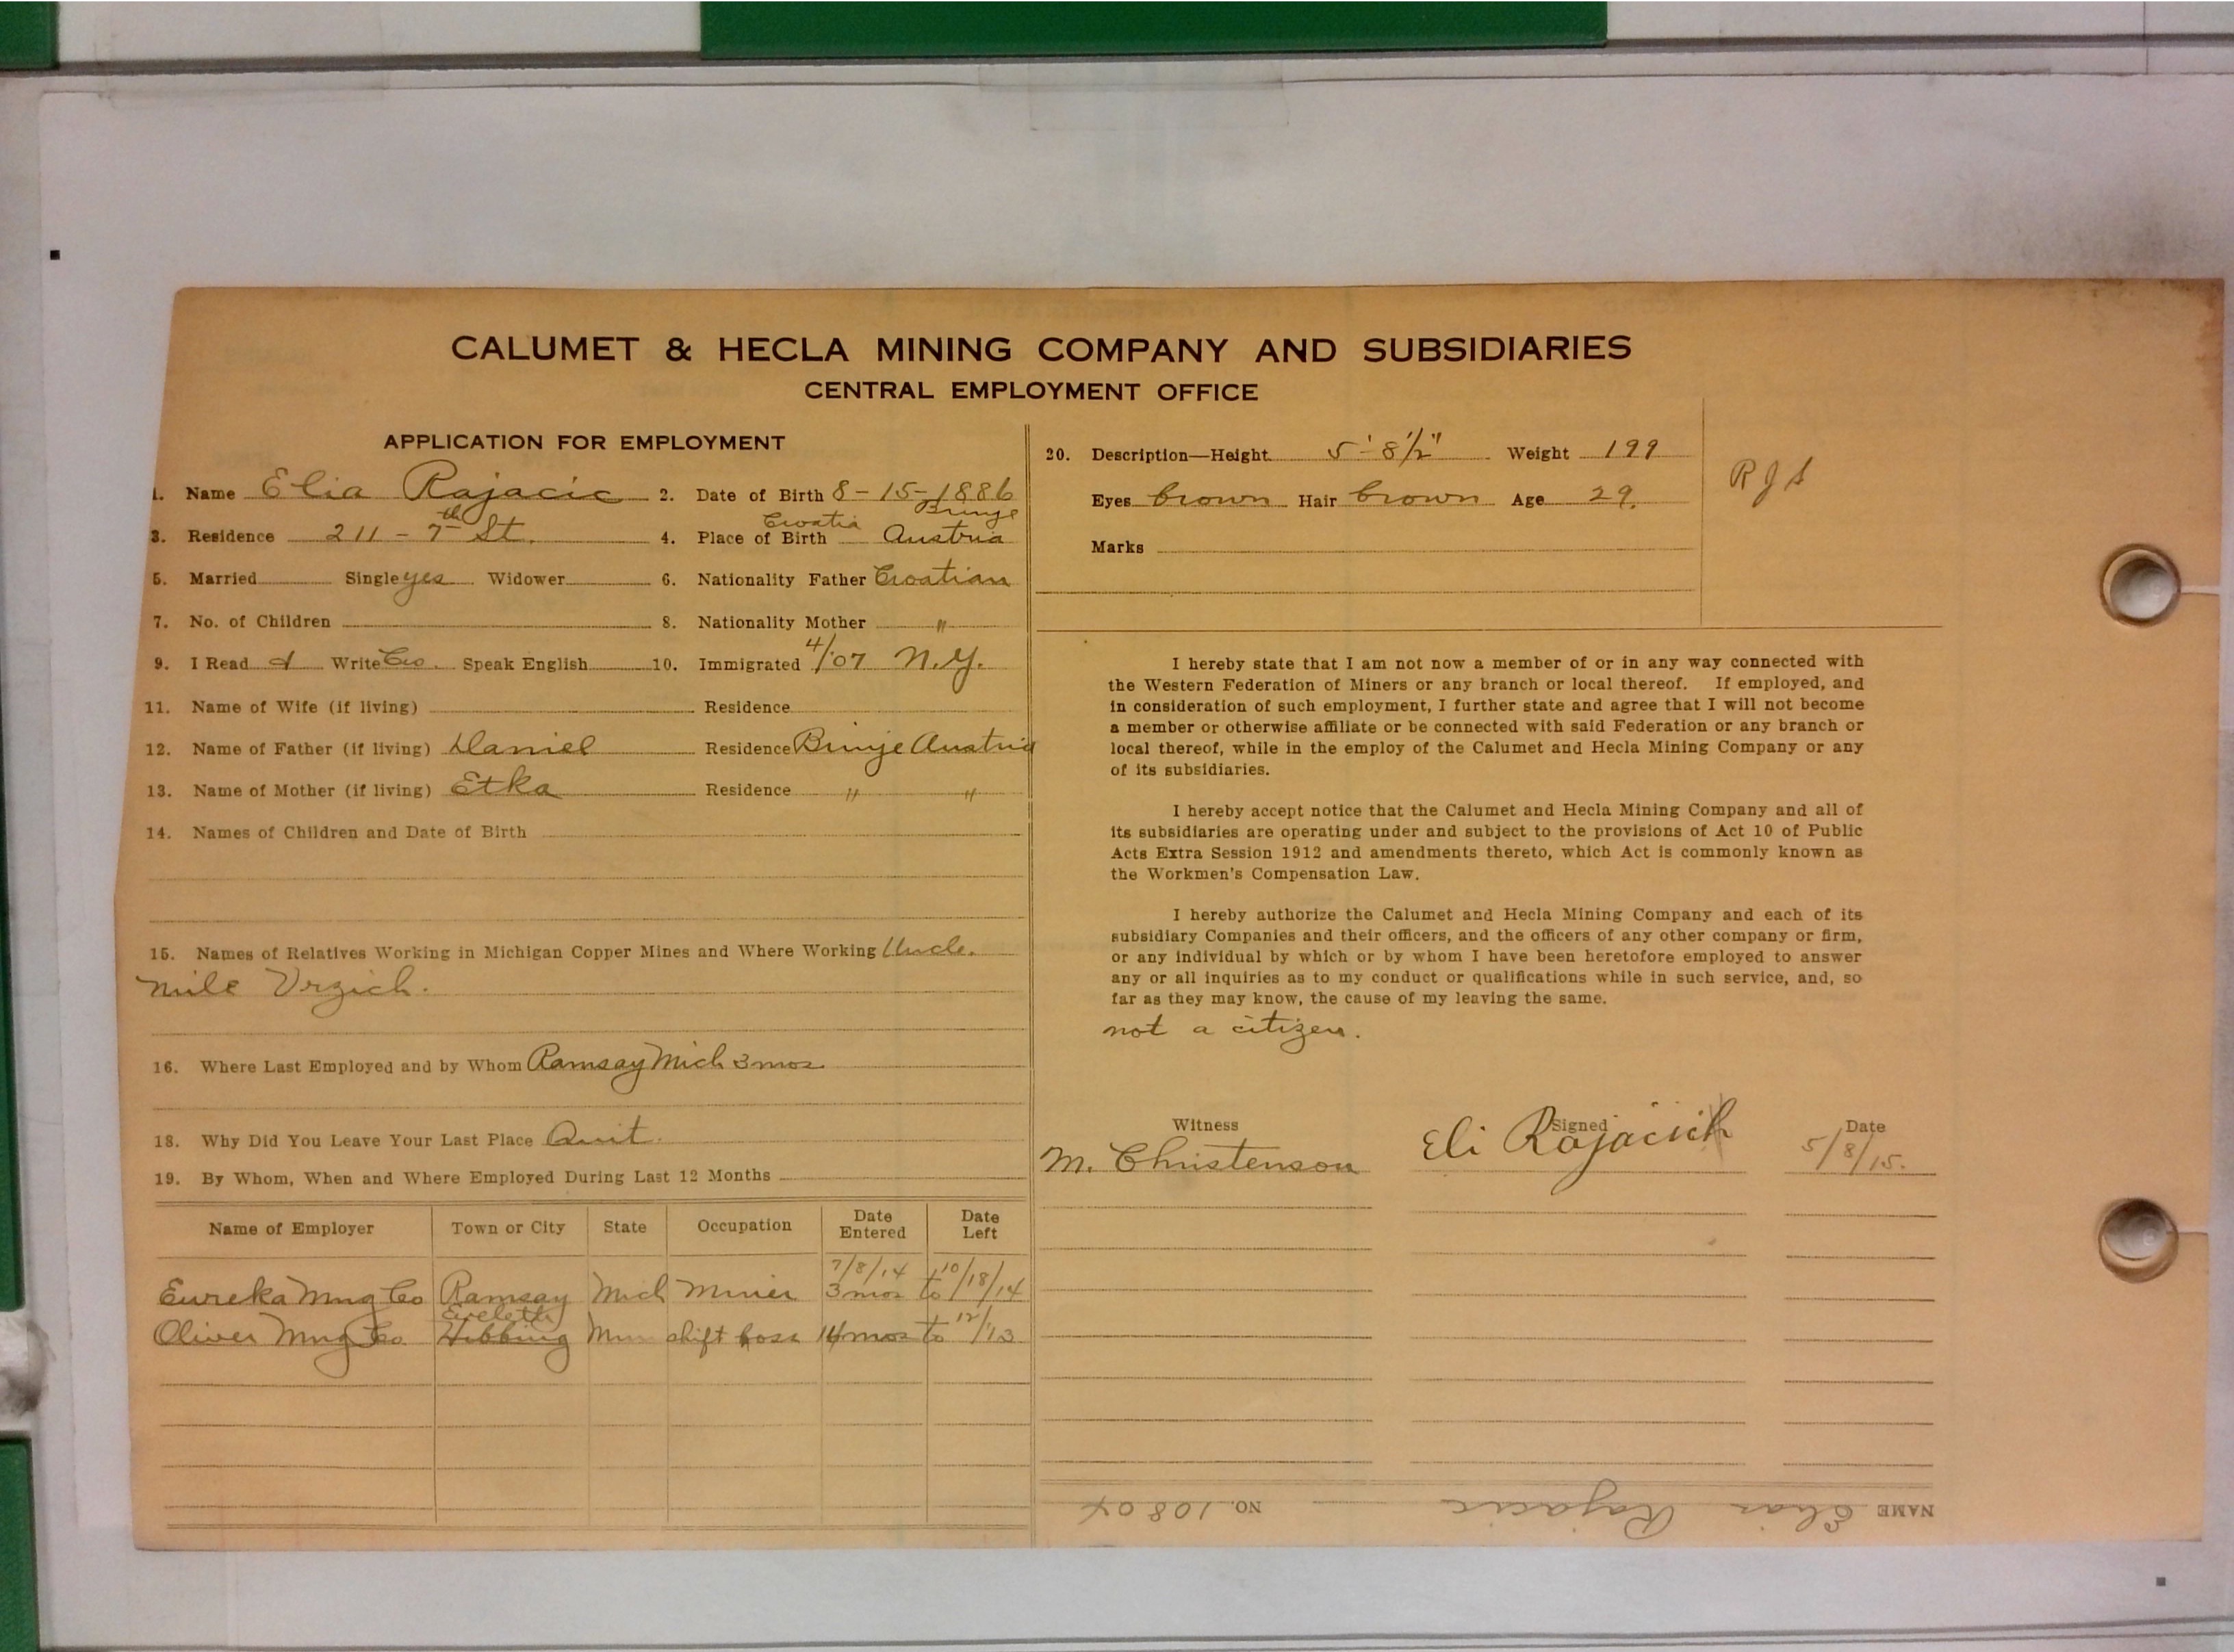 CALUMET & HECLA MINING COMPANY AND SUBSIDIARIES
CENTRAL EMPLOYMENT OFFICE
APPLICATION FOR EMPLOYMENT
1. Name Elia Rajacic 2. Date of Birth 8-15-1886
3. Residence 211 - 7th St. 4. Place of Birth Croatia Brinje Austria
5. Married Single yes Widower 6. Nationality Father Croatian
7. No. of Children 8. Nationality Mother "
9. I Read & Write Cro. Speak English 10. Immigrated 4/07 N.Y.
11. Name of Wife (if living) Residence
12. Name of Father (if living) Daniel Residence Brinje Austria
13. Name of Mother (if living) Etka Residence " "
14. Names of Children and Date of Birth
15. Names of Relatives Working in Michigan Copper Mines and Where Working Uncle.
Mile Vrzich.
16. Where Last Employed and by Whom Ramsay Mich 3 mos
18. Why Did You Leave Your Last Place Quit.
19. By Whom, When and Where Employed During Last 12 Months
Name of Employer Town or City State Occupation Date Entered Date Left
7/8/14 10/18/14
Eureka Mng Co Ramsay Mich Miner 3 mos to
Eveleth
Oliver Mng Co Hibbing Minn shift boss 14 mos to 12/13
20. Description—Height 5'-8 1/2" Weight 199
Eyes brown Hair brown Age 29.
Marks
RJS
I hereby state that I am not now a member of or in any way connected with
the Western Federation of Miners or any branch or local thereof. If employed, and
in consideration of such employment, I further state and agree that I will not become
a member or otherwise affiliate or be connected with said Federation or any branch or
local thereof, while in the employ of the Calumet and Hecla Mining Company or any
of its subsidiaries.
I hereby accept notice that the Calumet and Hecla Mining Company and all of
its subsidiaries are operating under and subject to the provisions of Act 10 of Public
Acts Extra Session 1912 and amendments thereto, which Act is commonly known as
the Workmen's Compensation Law.
I hereby authorize the Calumet and Hecla Mining Company and each of its
subsidiary Companies and their officers, and the officers of any other company or firm,
or any individual by which or by whom I have been heretofore employed to answer
any or all inquiries as to my conduct or qualifications while in such service, and, so
far as they may know, the cause of my leaving the same.
not a citizen.
Witness Signed Date
M. Christenson Eli Rajacich 5/8/15.
NAME Elias Rajacic NO. 10804